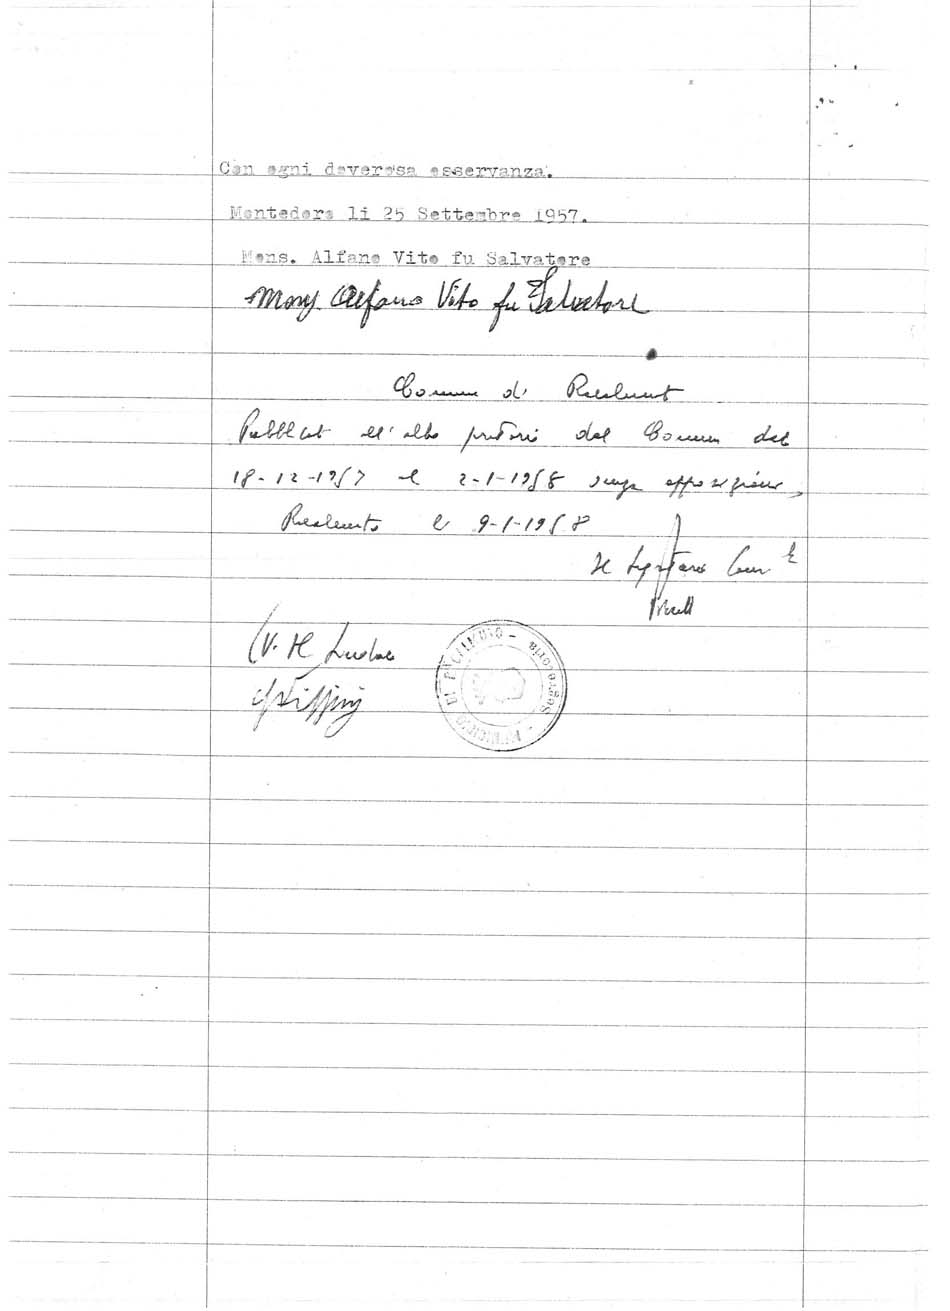 Con ogni doverosa osservanza.
Montedoro li 25 Settembre 1957.
Mons. Alfano Vito fu Salvatore
Mons. Alfano Vito fu Salvatore
Comune di Racalmuto
Pubblicato all'albo pretorio del Comune dal
18-12-1957 al 2-1-1958 senza opposizioni,
Racalmuto li 9-1-1958
Il Segretario Com.le
V. Il Sindaco
MUNICIPIO DI RACALMUTO - Segreteria -